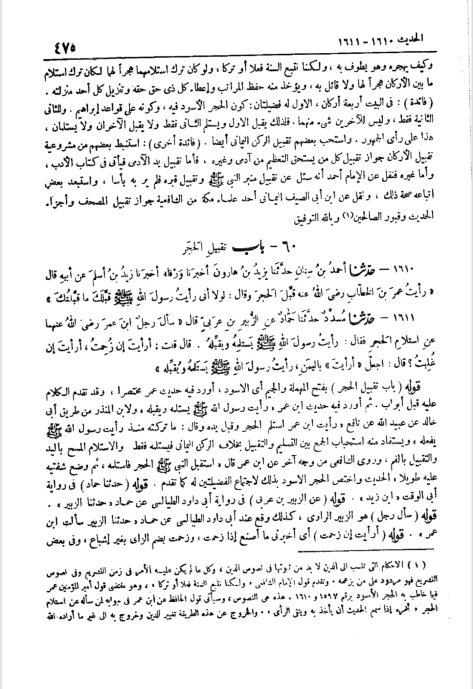 الحديث ١٦١٠ - ١٦١١
٤٧٥
وكيف يهجره وهو يطوف به ، ولكنا نتبع السنة فعلا أو تركا ، ولو كان ترك استلامهما هجراً لها لكان ترك استلام
ما بين الأركان هجراً لها ولا قائل به ، ويؤخذ منه حفظ المراتب وإعطاء كل ذى حق حقه وتنزيل كل أحد منزلته .
( فائدة ) : فى البيت أربعة أركان ، الأول له فضيلتان : كون الحجر الأسود فيه ، وكونه على قواعد إبراهيم . وللثانى
الثانية فقط ، وليس للآخرين شىء منهما . فلذلك يقبل الأول ويستلم الثانى فقط ولا يقبل الآخران ولا يستلمان ،
هذا على رأى الجمهور . واستحب بعضهم تقبيل الركن اليمانى أيضا . ( فائدة أخرى ) : استنبط بعضهم من مشروعية
تقبيل الأركان جواز تقبيل كل من يستحق التعظيم من آدمى وغيره ، فأما تقبيل يد الآدمى فيأتى فى كتاب الأدب ،
وأما غيره فنقل عن الإمام أحمد أنه سئل عن تقبيل منبر النبى ﷺ وتقبيل قبره فلم ير به بأسا ، واستبعد بعض
أتباعه صحة ذلك ، ونقل عن ابن أبى الصيف اليمانى أحد علماء مكة من الشافعية جواز تقبيل المصحف وأجزاء
الحديث وقبور الصالحين (١) وبالله التوفيق
٦٠ - باب تقبيل الحجر
١٦١٠ - حدثنا أحمد بن سنان حدثنا يزيد بن هارون أخبرنا ورقاء أخبرنا زيد بن أسلم عن أبيه قال
« رأيت عمر بن الخطاب رضى الله عنه قبل الحجر وقال : لولا أنى رأيت رسول الله ﷺ قبلك ما قبلتك »
١٦١١ - حدثنا مسدد حدثنا حماد عن الزبير بن عربى قال « سأل رجل ابن عمر رضى الله عنهما
عن استلام الحجر فقال : رأيت رسول الله ﷺ يستلمه ويقبله . قال قلت : أرأيت إن زحمت ، أرأيت إن
غلبت ؟ قال : اجعل « أرأيت » باليمن ، رأيت رسول الله ﷺ يستلمه ويقبله »
قوله ( باب تقبيل الحجر ) بفتح المهملة والجيم أى الأسود ، أورد فيه حديث عمر مختصرا ، وقد تقدم الكلام
عليه قبل أبواب . ثم أورد فيه حديث ابن عمر « رأيت رسول الله ﷺ يستلمه ويقبله ، ولابن المنذر من طريق أبى
خالد عن عبيد الله عن نافع « رأيت ابن عمر استلم الحجر وقبل يده وقال : ما تركته منذ رأيت رسول الله ﷺ
يفعله » ويستفاد منه استحباب الجمع بين التسليم والتقبيل بخلاف الركن اليمانى فيستلمه فقط والاستلام المسح باليد
والتقبيل بالفم ، وروى الشافعى من وجه آخر عن ابن عمر قال « استقبل النبى ﷺ الحجر فاستلمه ، ثم وضع شفتيه
عليه طويلا ، الحديث واختص الحجر الأسود بذلك لاجتماع الفضيلتين له كما تقدم . قوله ( حدثنا حماد ) فى رواية
أبى الوقت « ابن زيد » . قوله ( عن الزبير بن عربى ) فى رواية أبى داود الطيالسى عن حماد « حدثنا الزبير » .
قوله ( سأل رجل ) هو الزبير الراوى ، كذلك وقع عند أبى داود الطيالسى عن حماد « حدثنا الزبير سألت ابن
عمر » . قوله ( أرأيت إن زحمت ) أى أخبرنى ما أصنع إذا زحمت ، وزحمت بضم الزاى بغير إشباع ، وفى بعض
( ١ ) الأحكام التى تنسب إلى الدين لا بد من ثبوتها فى نصوص الدين ، وكل ما لم يكن عليه الأمر فى زمن التشريع وفى نصوص
التشريع فهو مردود على من يزعمه . وتقدم قول الإمام الشافعى « ولكنا نتبع السنة فعلا أو تركا » ، وهو مقتضى قول أمير المؤمنين عمر
فيما خاطب به الحجر الأسود برقم ١٥٩٧ و ١٦١٠ . هذه هى النصوص ، وسيأتى قول الحافظ عن ابن عمر فى جوابه لمن سأله عن استلام
الحجر « أمره إذا سمع الحديث أن يأخذ به ويتقى الرأى » . والخروج عن هذه الطريقة تغيير للدين وخروج به إلى غير ما أراده الله